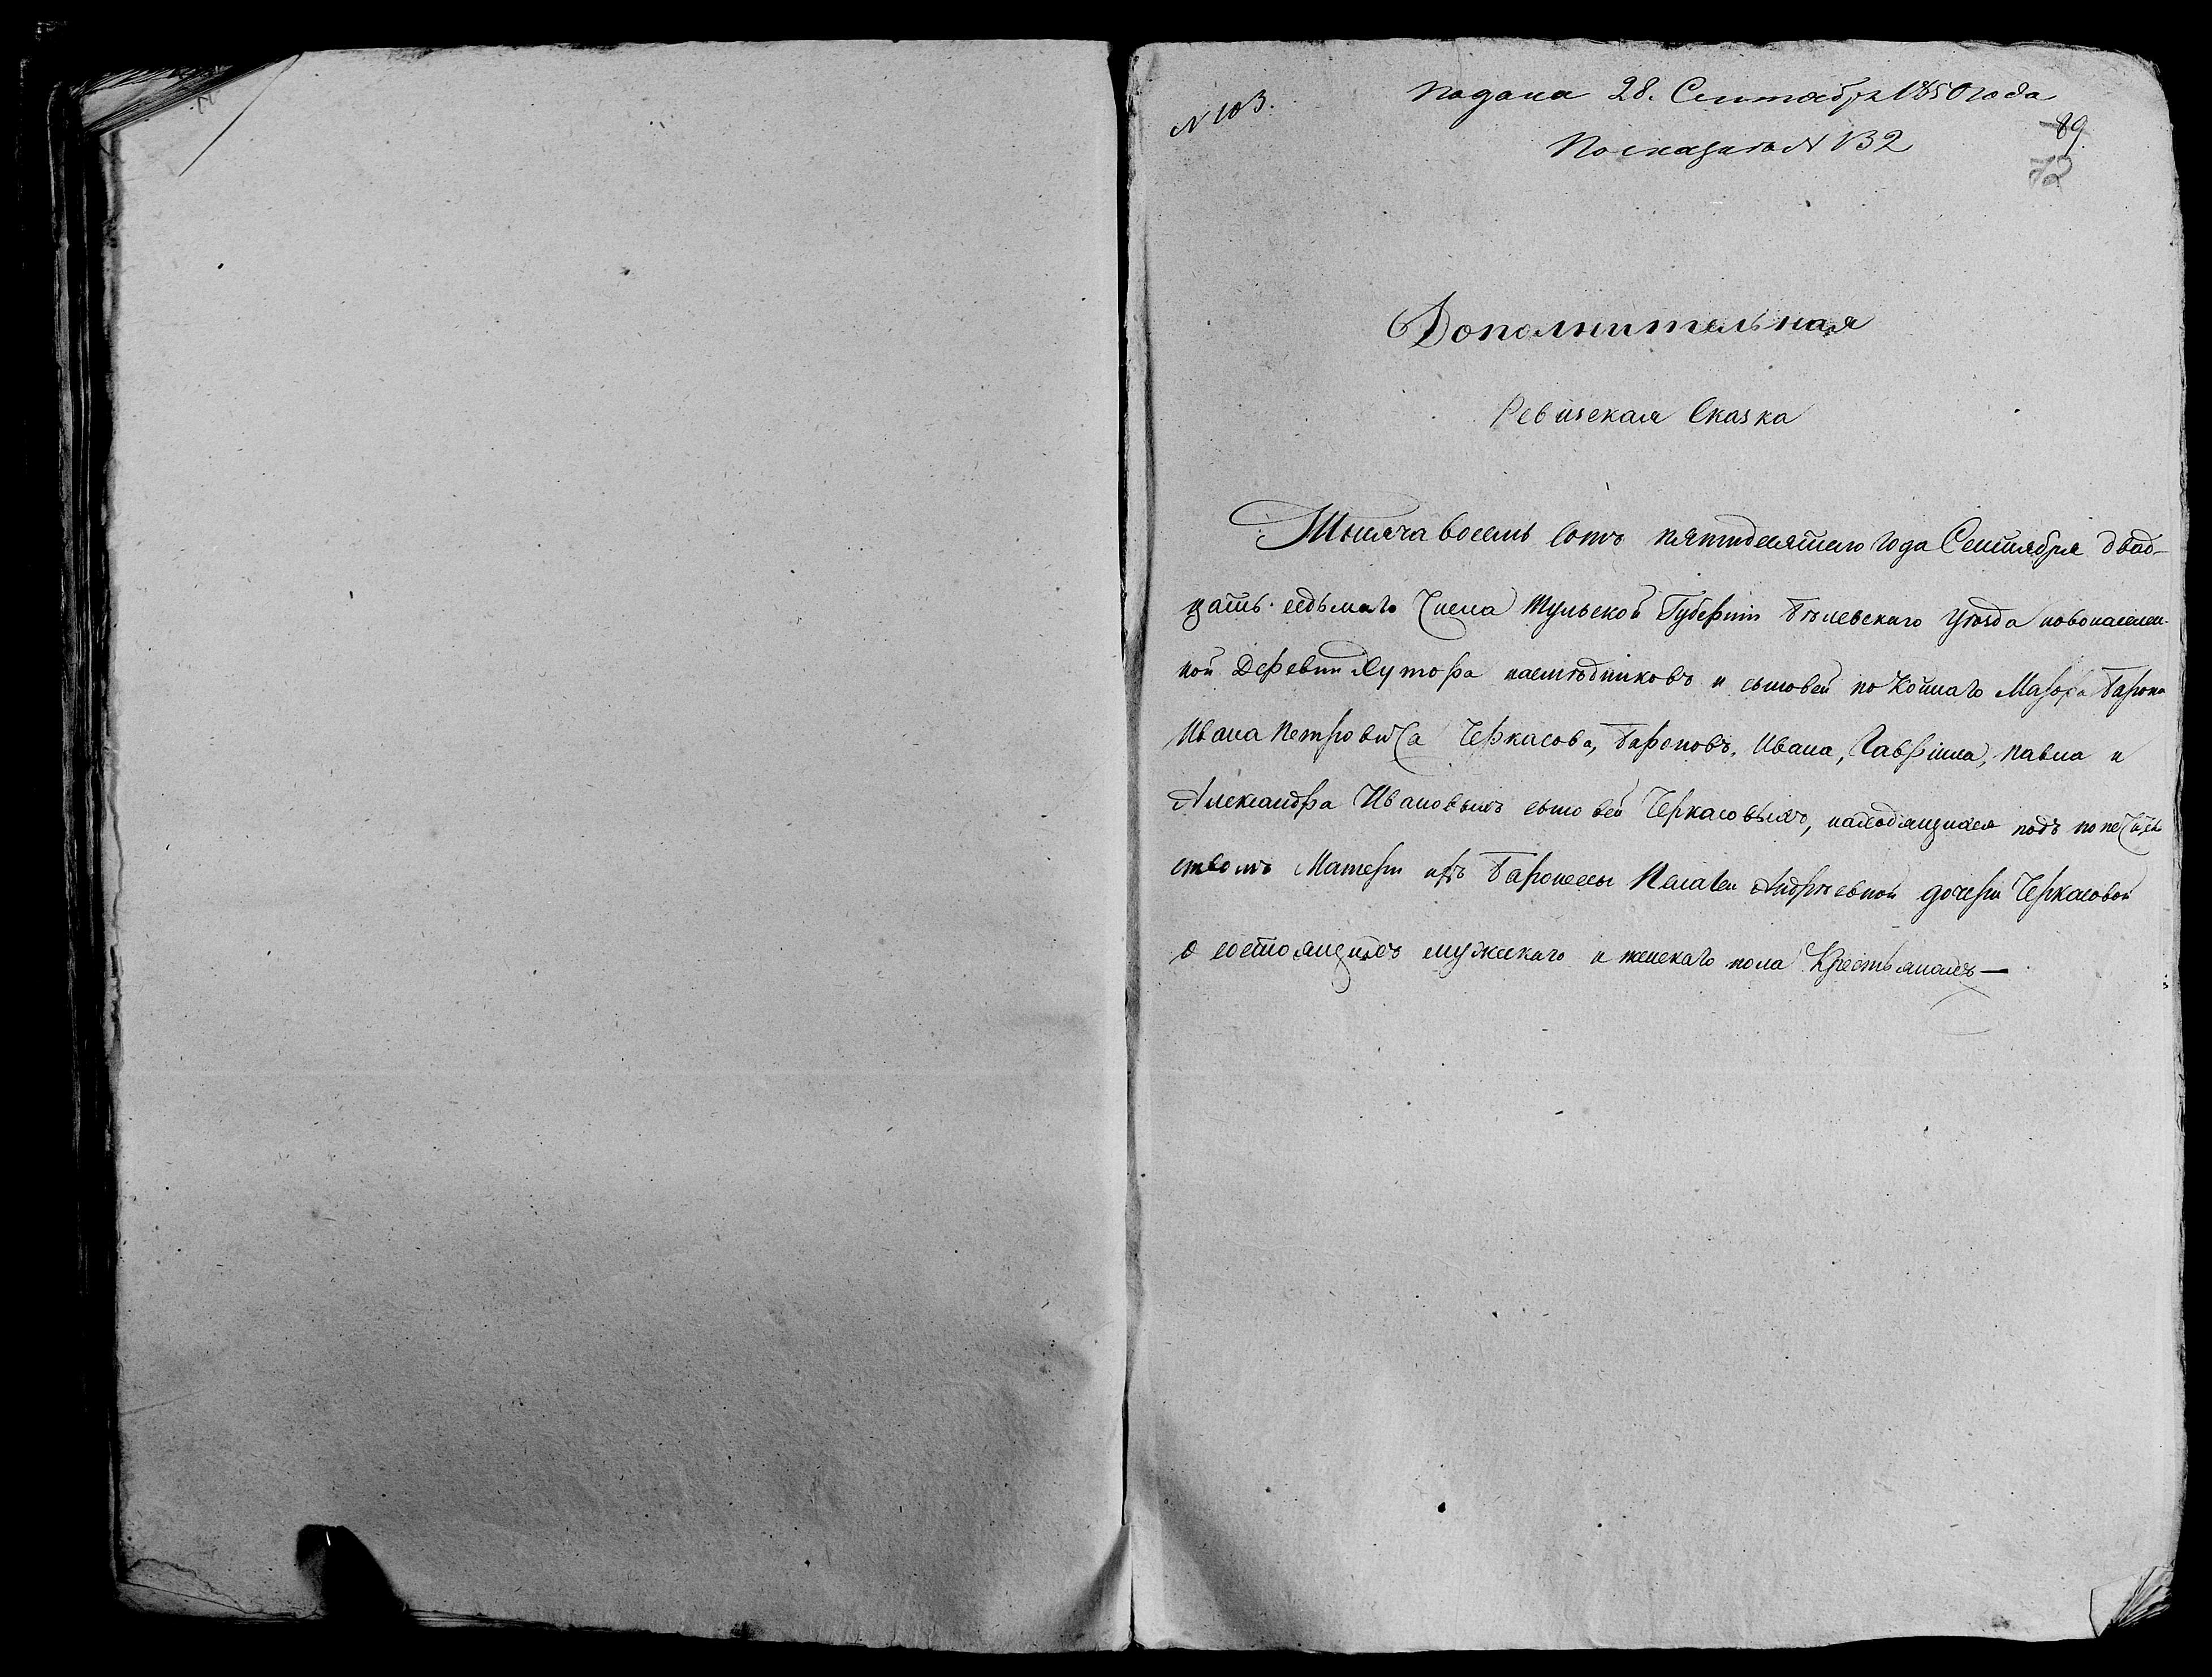 N 103.
Подана 28. Сентября 1850 года
По сказкѣ N 132
89
72
Дополнительная
Ревизская Сказка
Тысяча восемь сотъ пятидесятаго года Сентября двад-
цать седьмаго Числа Тульской Губерніи Бѣлевскаго Уѣзда новонаселен-
ной Деревни Хутора наслѣдниковъ и сыновей покойнаго Маіора Барона
Ивана Петровича Черкасова, Бароновъ, Ивана, Гавріила, Павла и
Александра Ивановыхъ сыновей Черкасовыхъ, находящихся подъ попечитель
ствомъ Матери ихъ Баронессы Пелагеи Андрѣевной дочери Черкасовой
о состоящихъ мужскаго и женскаго пола Крестьянахъ —